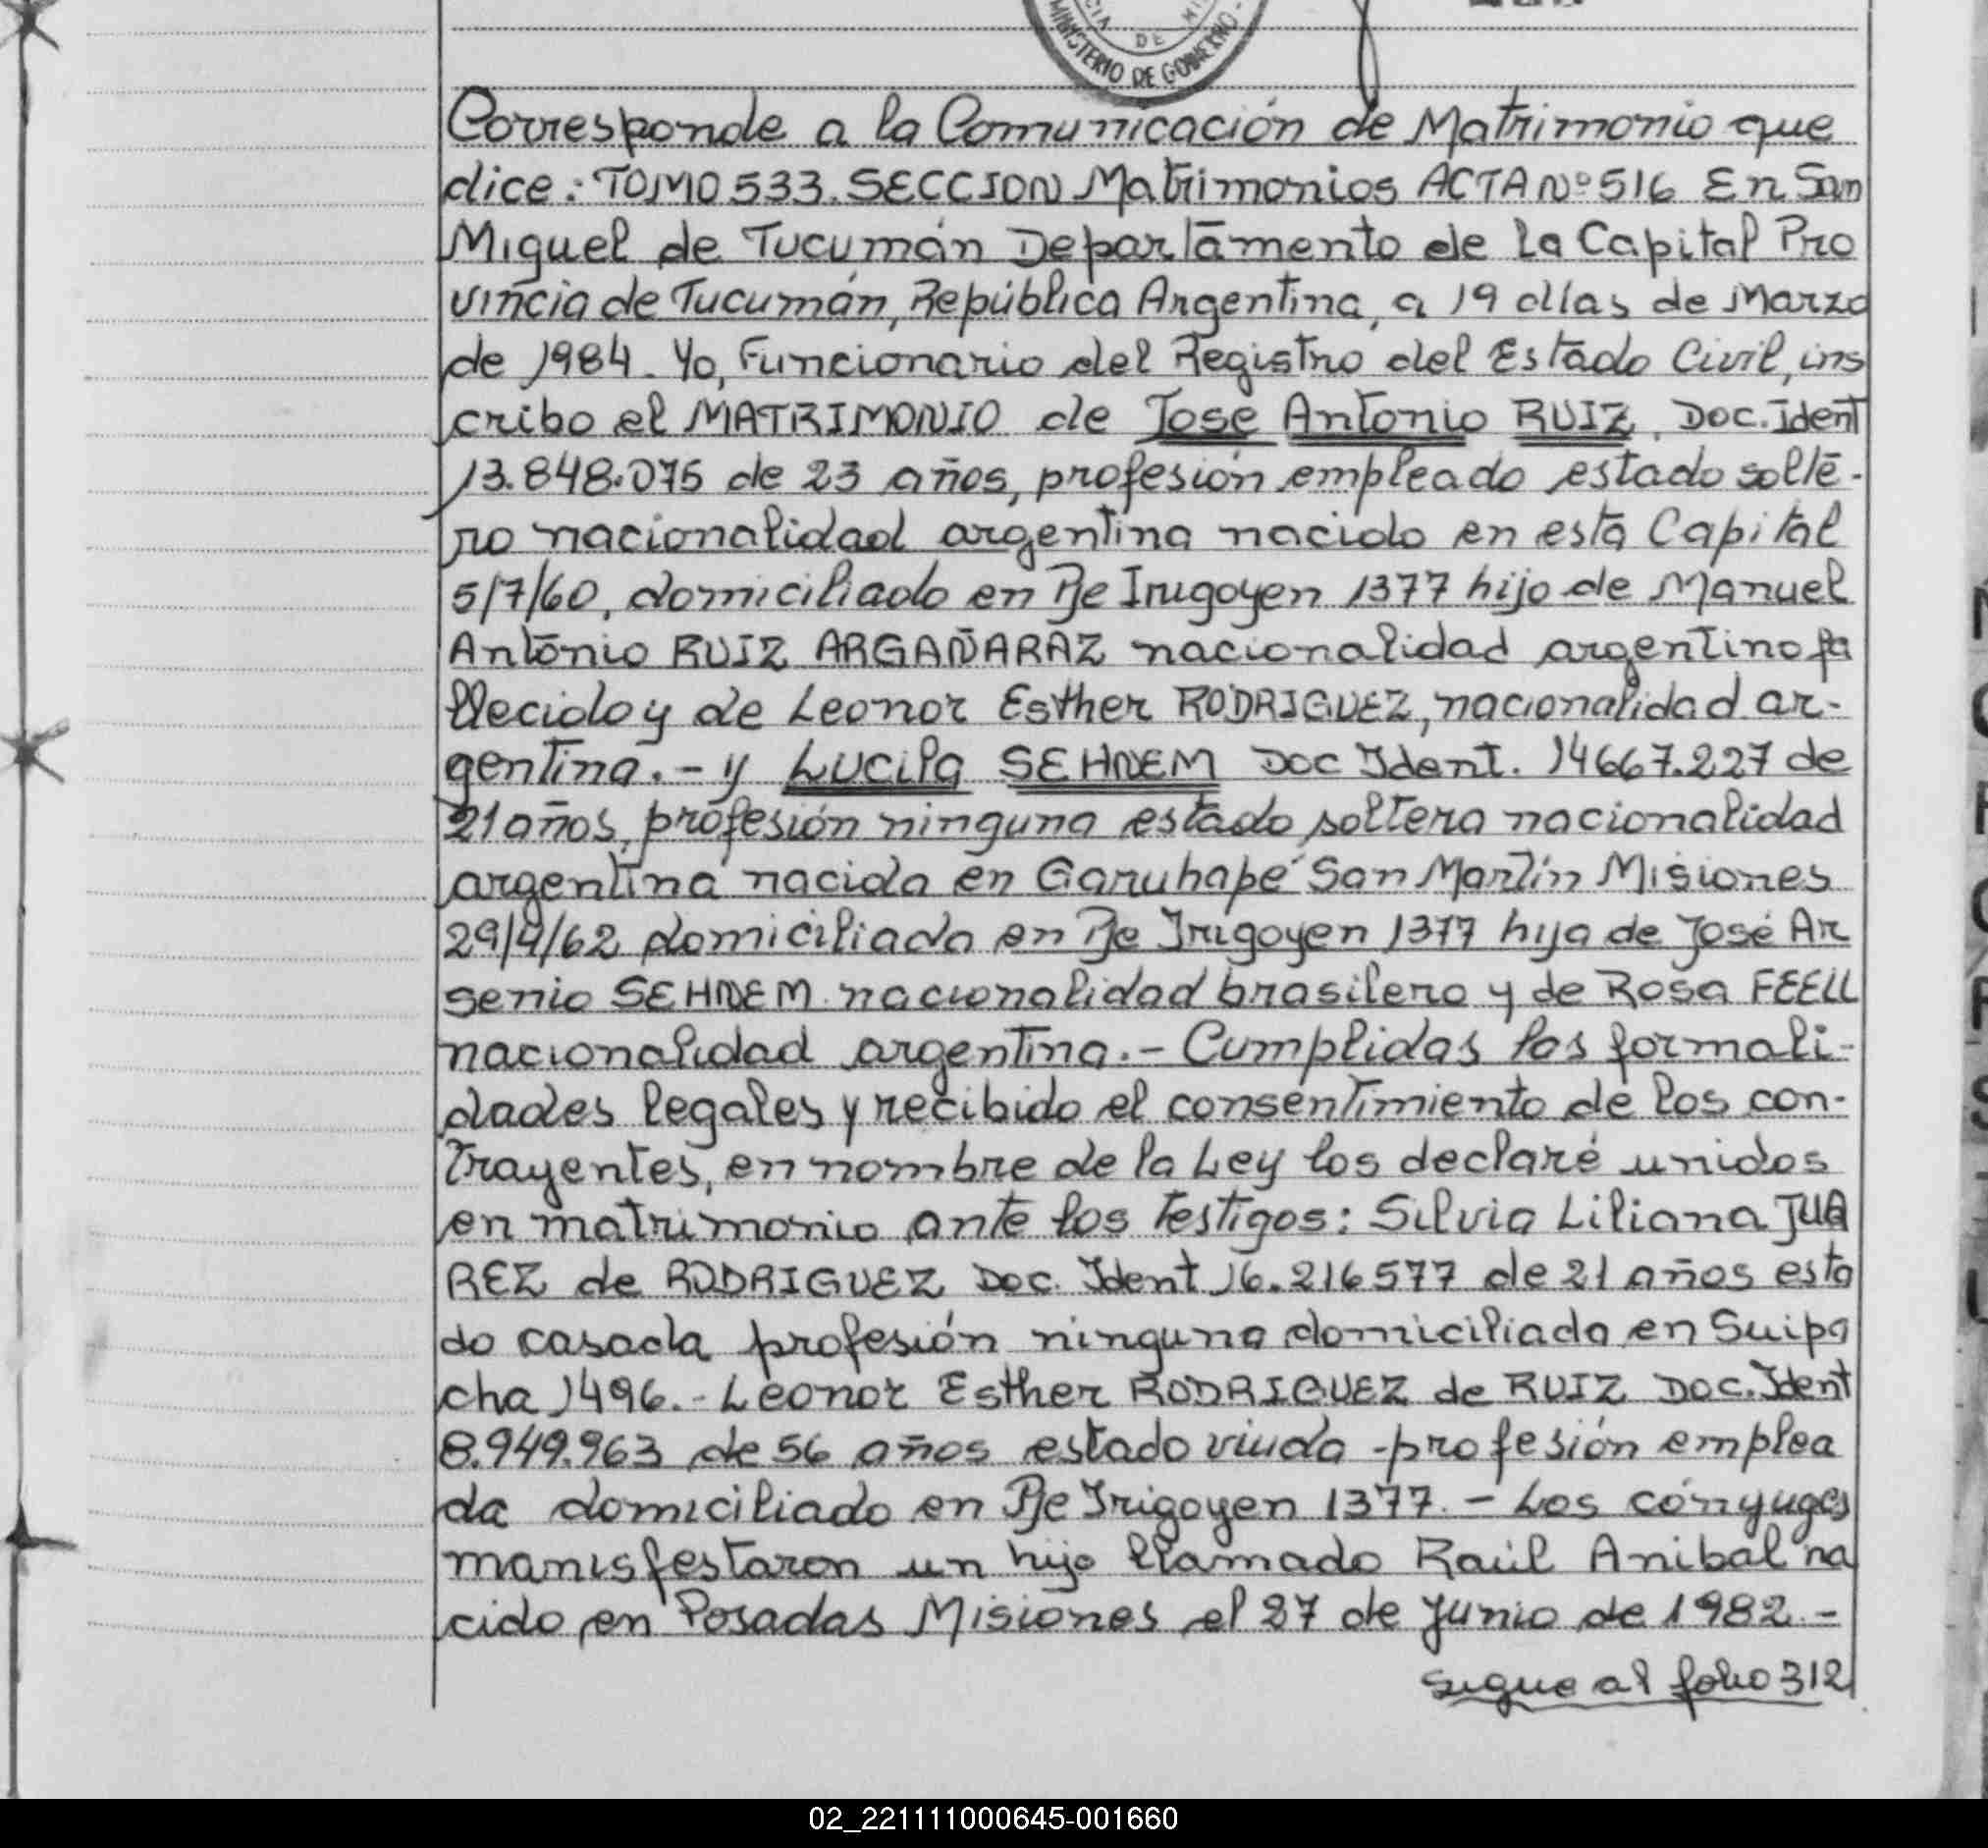 CIA DE MI
MINISTERIO DE GOBIERNO -
Corresponde a la Comunicación de Matrimonio que
dice: TOMO 533. SECCION Matrimonios ACTA Nº 516 En San
Miguel de Tucumán Departamento de La Capital Pro
vincia de Tucumán, República Argentina, a 19 días de Marzo
de 1984. Yo, Funcionario del Registro del Estado Civil, ins
cribo el MATRIMONIO de Jose Antonio RUIZ. Doc. Ident
13.848.075 de 23 años, profesión empleado estado solte-
ro nacionalidad argentina nacido en esta Capital
5/7/60, domiciliado en Pje Irigoyen 1377 hijo de Manuel
Antonio RUIZ ARGAÑARAZ nacionalidad argentino fa
llecido y de Leonor Esther RODRIGUEZ, nacionalidad ar-
gentina.- y Lucila SEHNEM Doc Ident. 14667.227 de
21 años, profesión ninguna estado soltera nacionalidad
argentina nacida en Garuhapé San Martín Misiones
29/9/62 domiciliada en Pje Irigoyen 1377 hija de José Ar
senio SEHNEM nacionalidad brasilero y de Rosa FEELL
nacionalidad argentina.- Cumplidas las formali-
dades legales y recibido el consentimiento de los con-
trayentes, en nombre de la Ley los declaré unidos
en matrimonio ante los testigos: Silvia Liliana JUA
REZ de RODRIGUEZ Doc. Ident 16.216577 de 21 años esta
do casada profesión ninguna domiciliada en Suipa
cha 1496.- Leonor Esther RODRIGUEZ de RUIZ Doc. Ident
8.949.963 de 56 años estado viuda -profesión emplea
da domiciliado en Pje Irigoyen 1377.- Los cónyuges
manisfestaron un hijo llamado Raúl Anibal na
cido en Posadas Misiones el 27 de Junio de 1982.-
sigue al folio 312
02_221111000645-001660